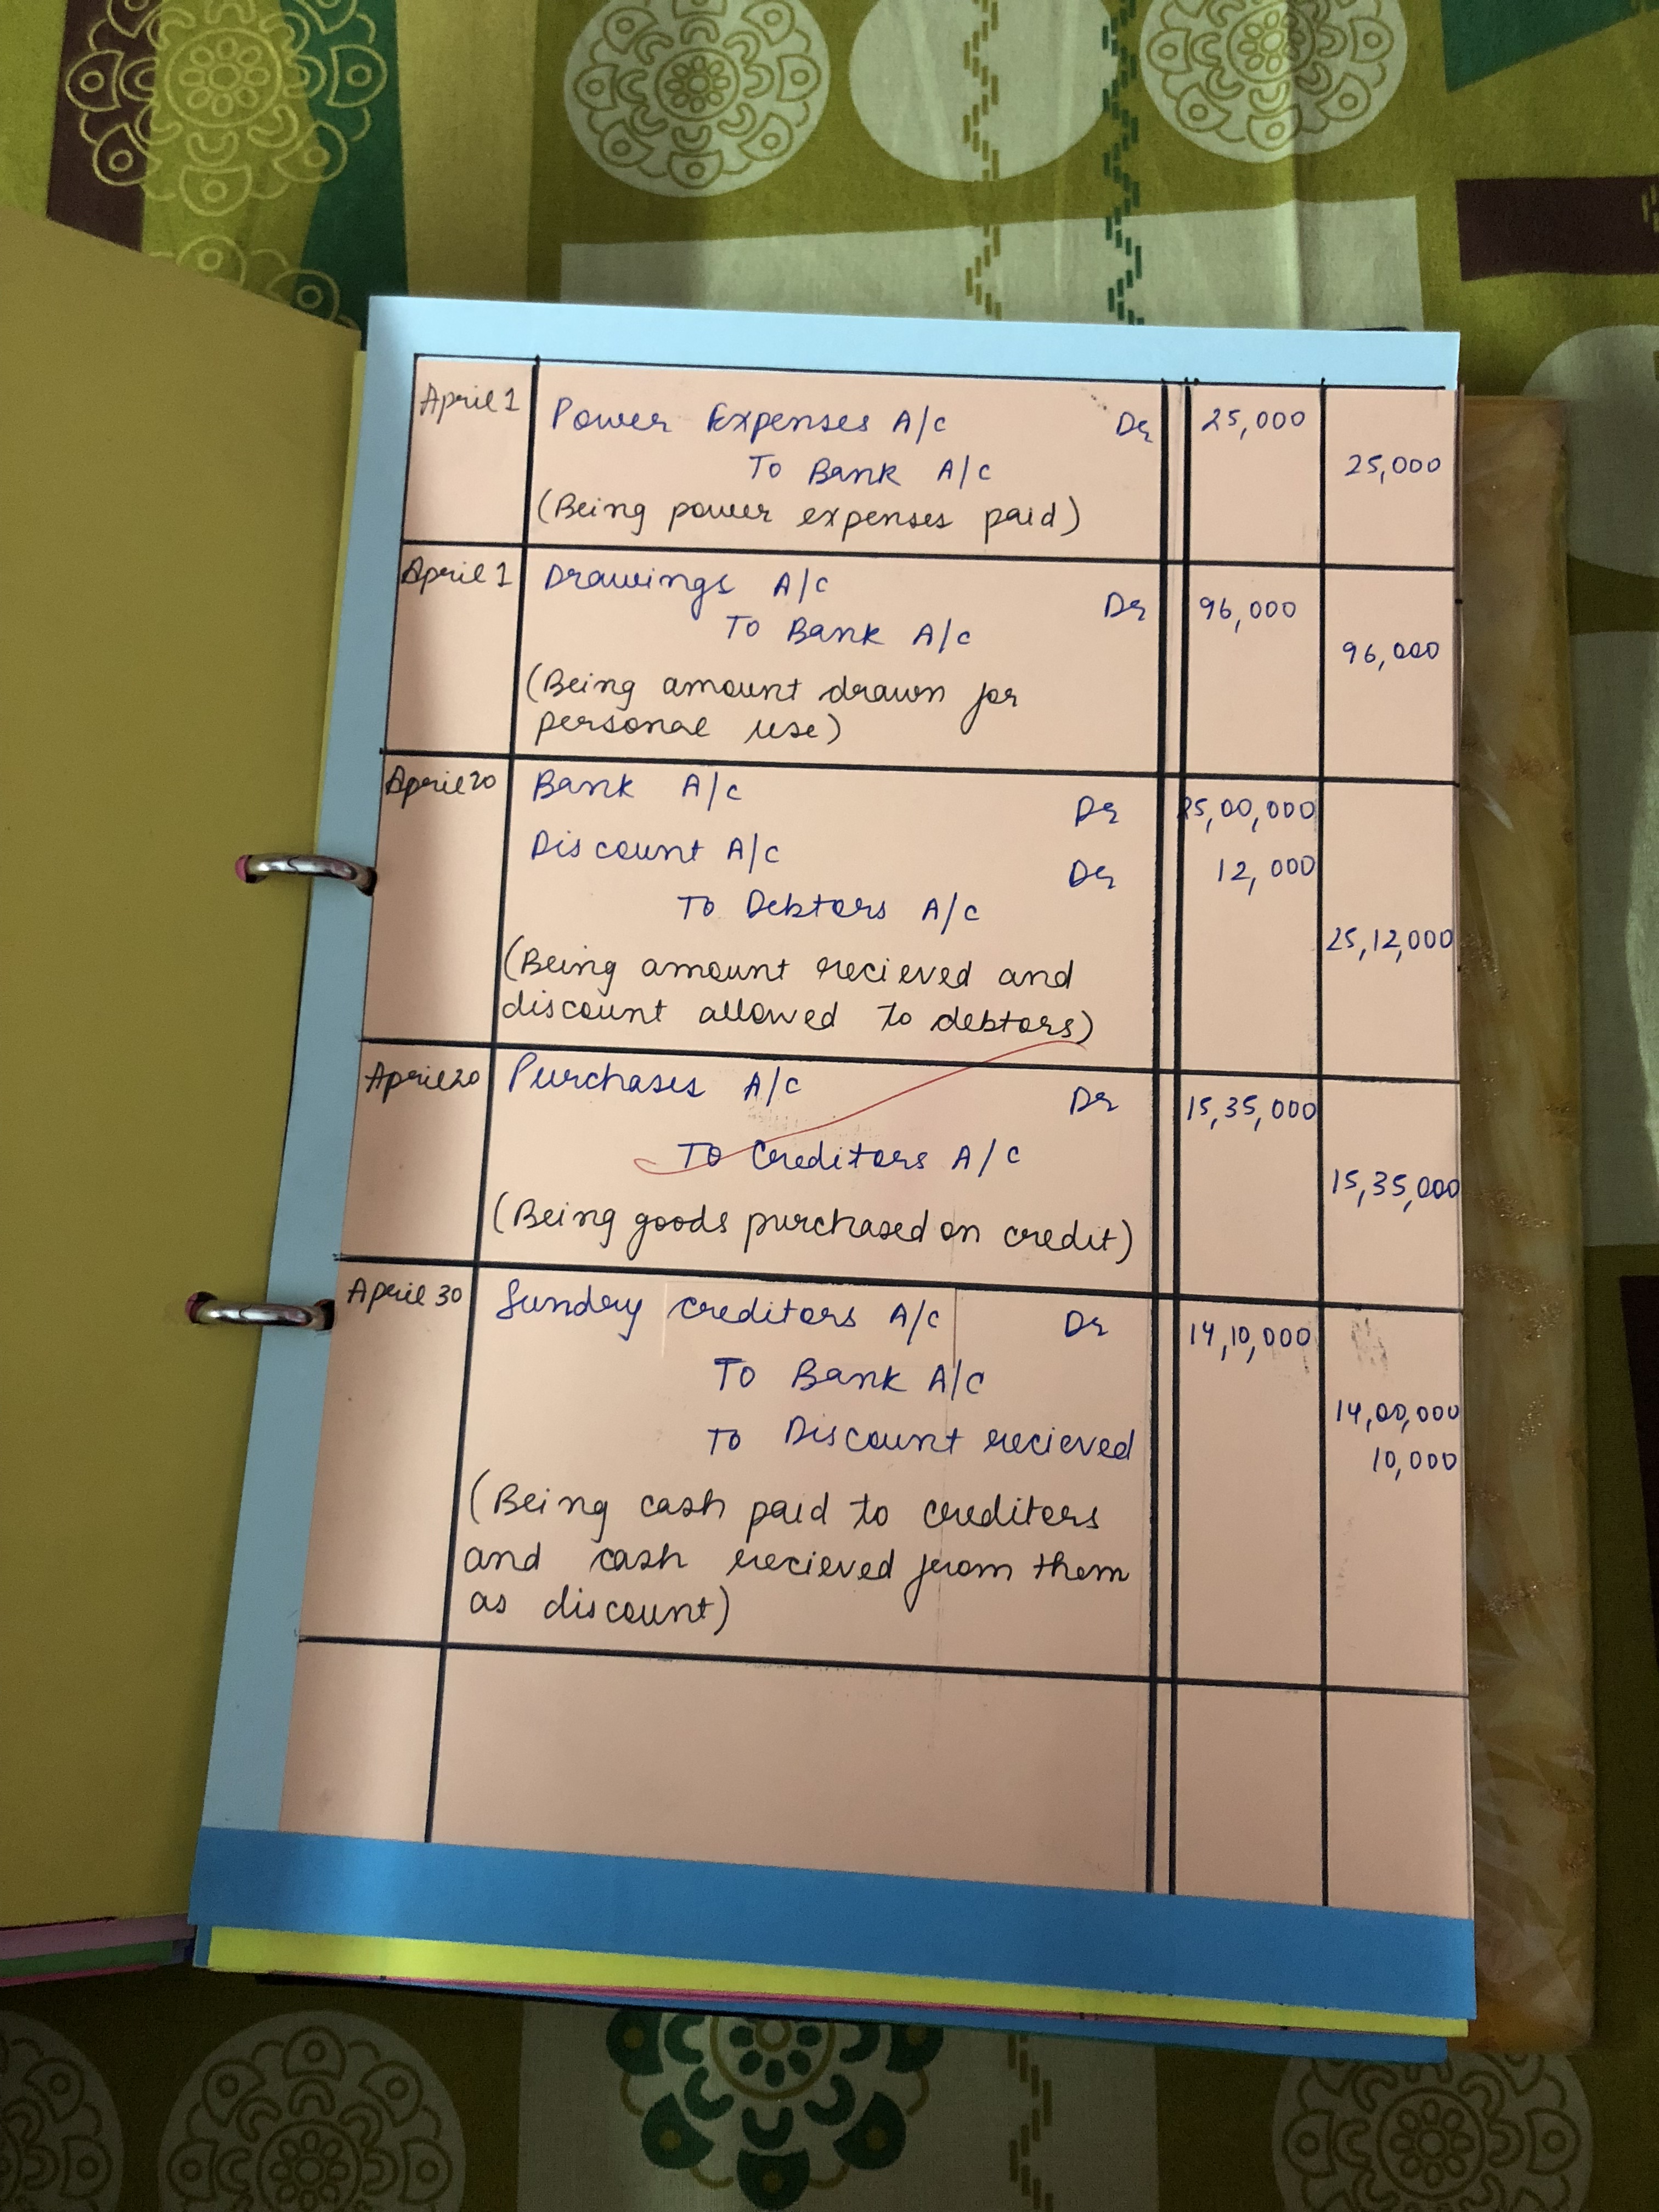 April 1 Power Expenses A/c Dr 25,000
To Bank A/c 25,000
(Being power expenses paid)
April 1 Drawings A/c Dr 96,000
To Bank A/c 96,000
(Being amount drawn for
personal use)
April 20 Bank A/c Dr 25,00,000
Discount A/c Dr 12,000
To Debtors A/c 25,12,000
(Being amount recieved and
discount allowed to debtors)
April 20 Purchases A/c Dr 15,35,000
To Creditors A/c 15,35,000
(Being goods purchased on credit)
April 30 Sundry creditors A/c Dr 14,10,000
To Bank A/c 14,00,000
To Discount recieved 10,000
(Being cash paid to creditors
and cash recieved from them
as discount)